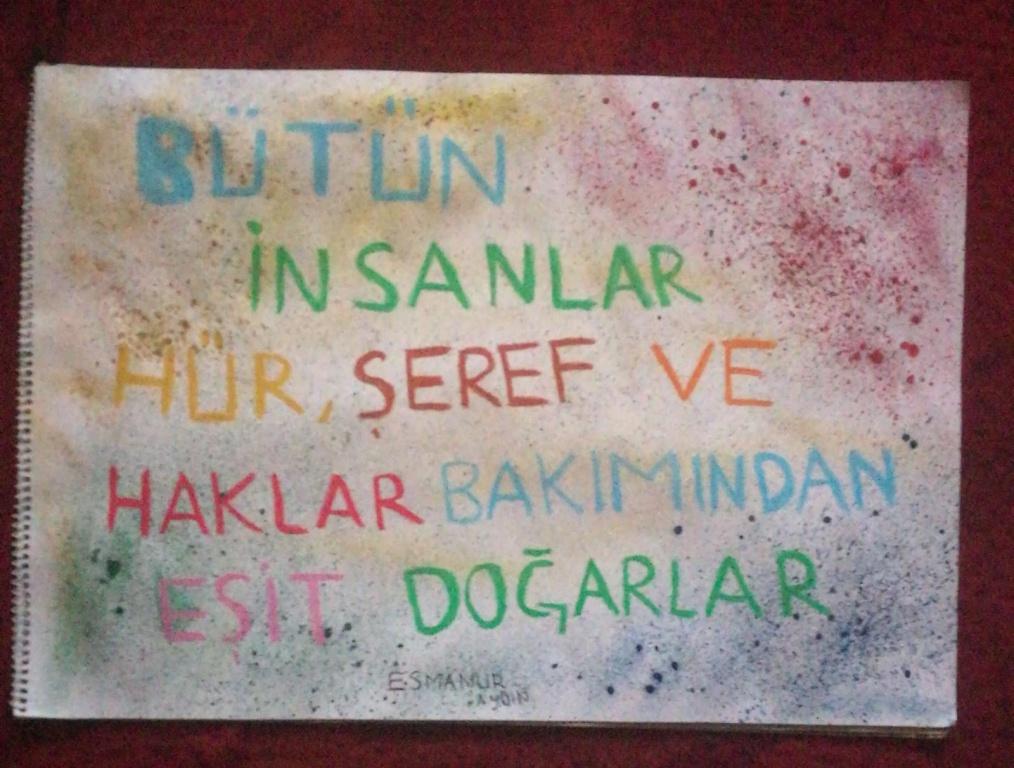 BÜTÜN
İNSANLAR
HÜR, ŞEREF VE
HAKLAR BAKIMINDAN
EŞİT DOĞARLAR
ESMANUR
AYDIN